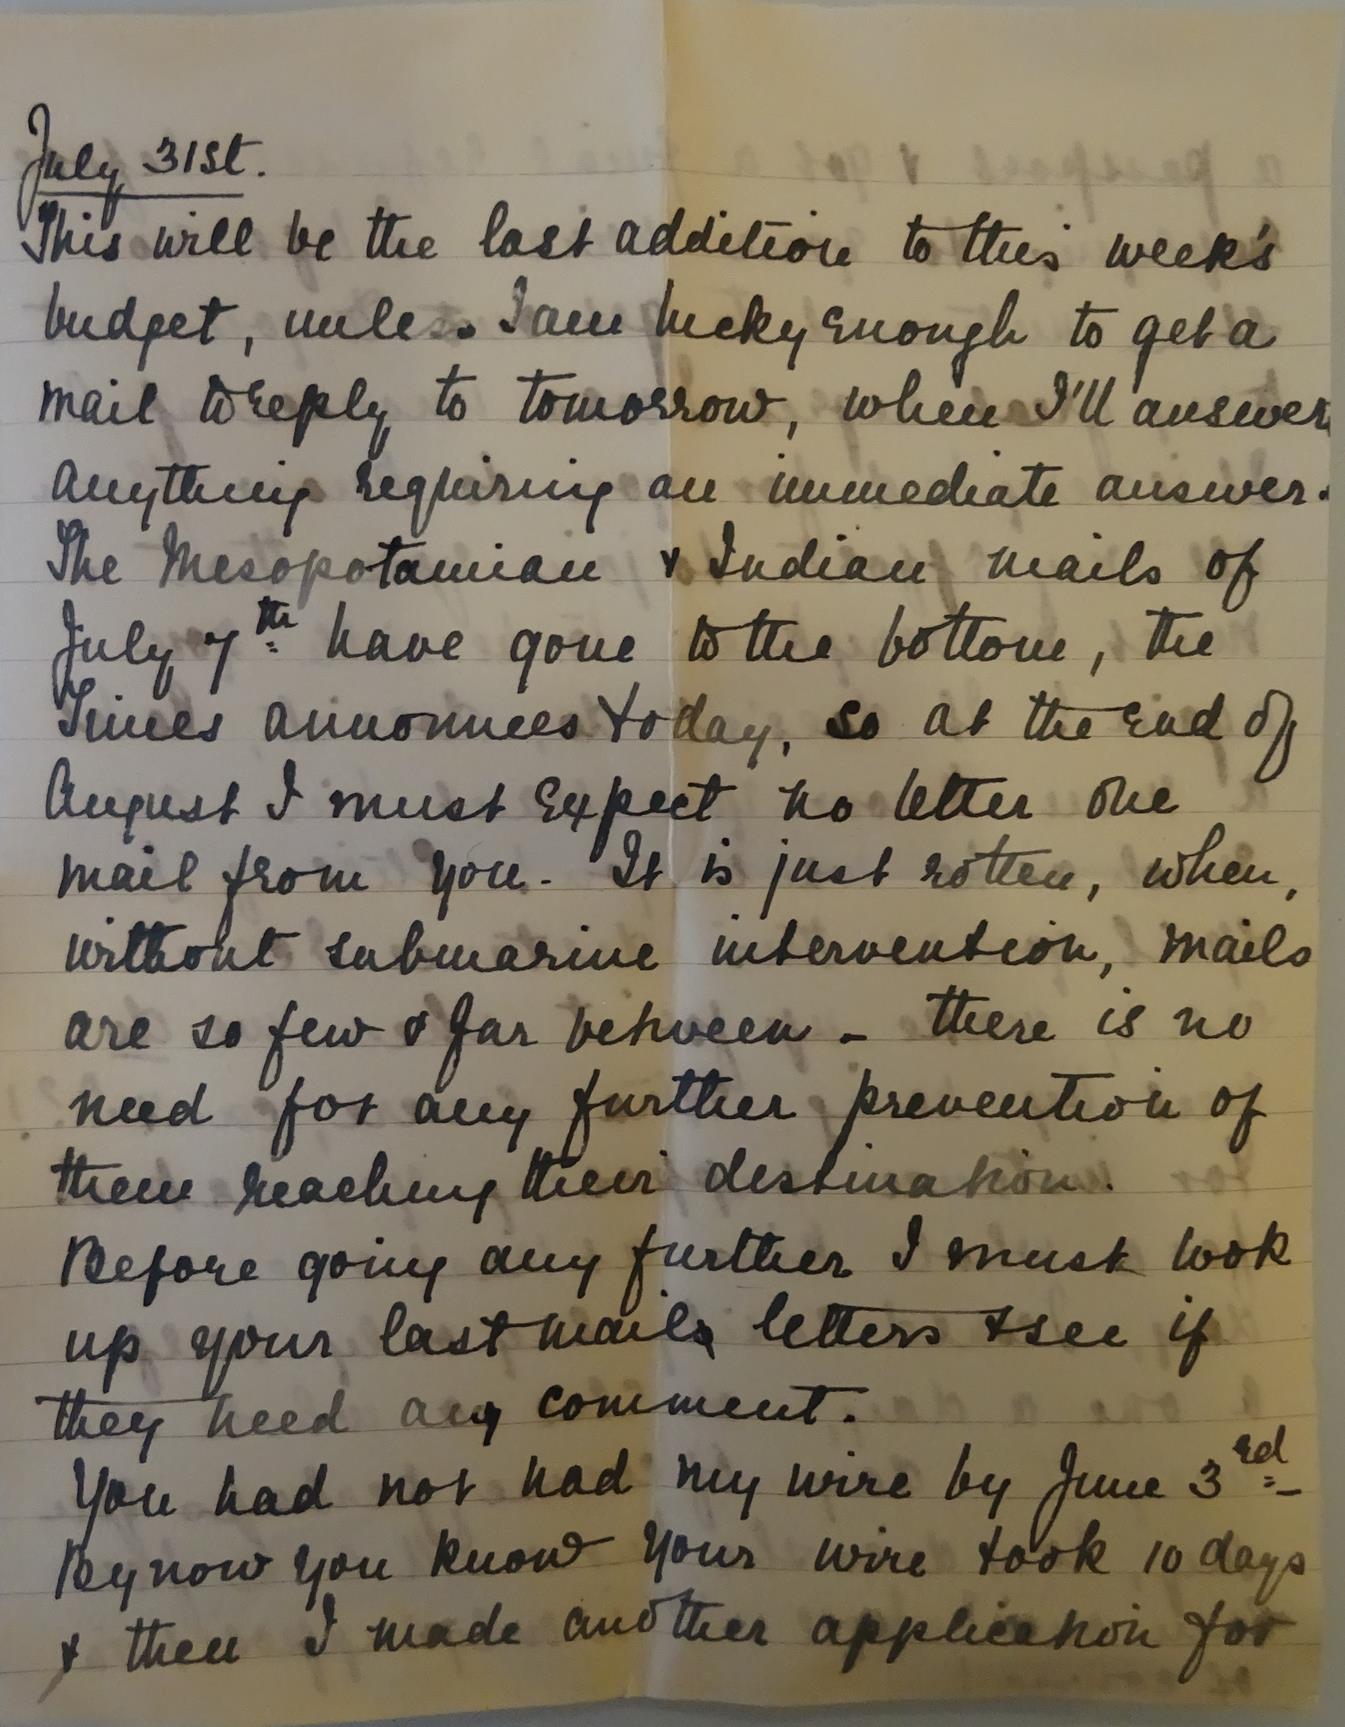 July 31st.
This will be the last addition to this week's
budget, unless I am lucky enough to get a
mail to reply to tomorrow, when I'll answer
anything requiring an immediate answer.
The Mesopotamian & Indian mails of
July 7th have gone to the bottom, the
Times announces today, so at the end of
August I must expect no letter one
mail from you. It is just rotten, when,
without submarine intervention, mails
are so few & far between - there is no
need for any further prevention of
them reaching their destination.
Before going any further I must look
up your last mails letters & see if
they need any comment.
You had not had my wire by June 3rd -
By now you know your wire took 10 days
& then I made another application for